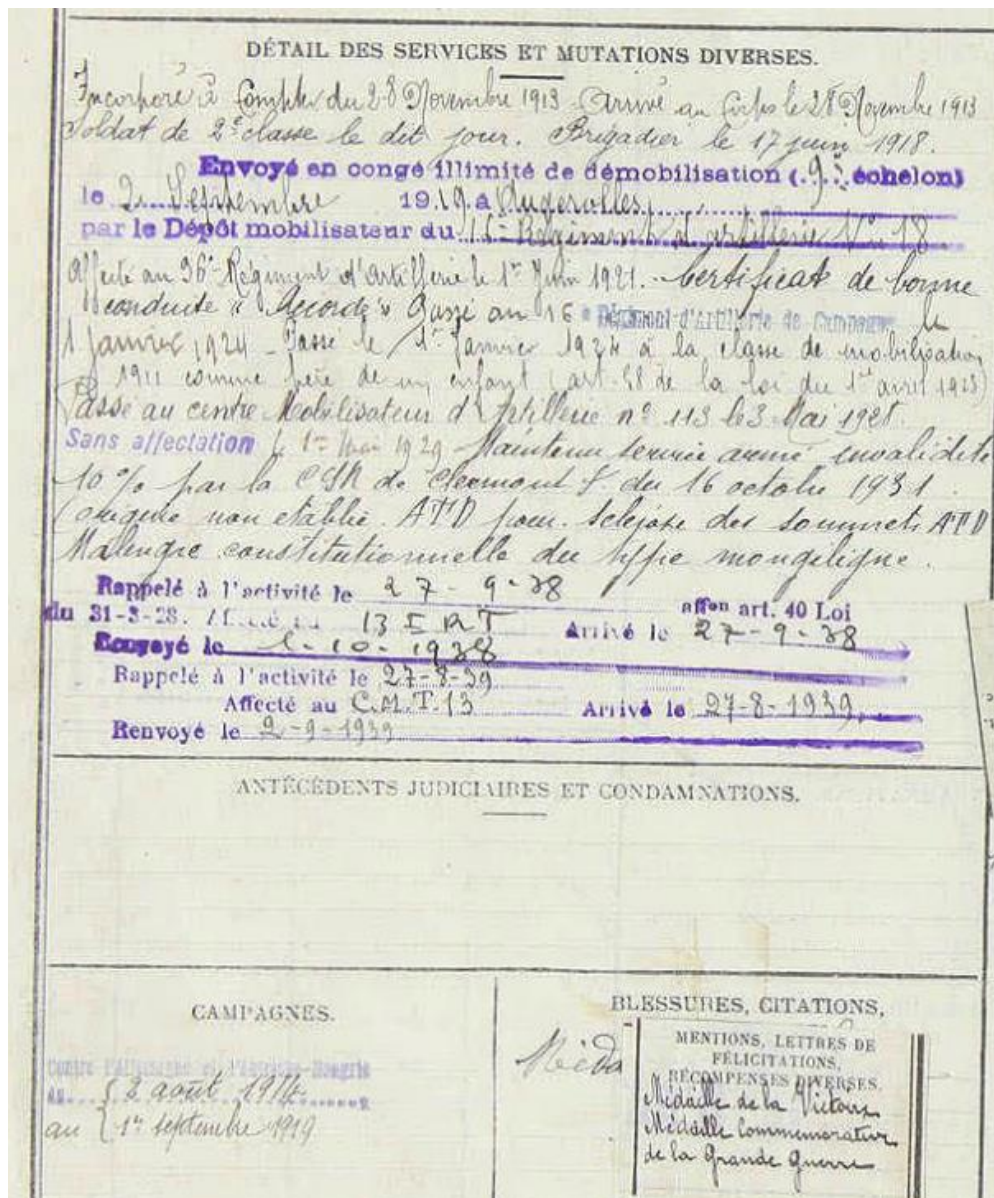 DÉTAIL DES SERVICES ET MUTATIONS DIVERSES.
Incorporé à Compter du 28 Novembre 1913 - Arrivé au Corps le 28 Novembre 1913
Soldat de 2e classe le dit jour. Brigadier le 17 juin 1918.
Envoyé en congé illimité de démobilisation (.9e. échelon)
le 2 Septembre 1919 à Augerolles
par le Dépôt mobilisateur du Régiment d'artillerie N° 18
Affecté au 36e Régiment d'artillerie le 1er Juin 1921. Certificat de bonne
conduite "Accordé" Passé au 16e Régiment d'Artillerie de Campagne le
1 janvier 1924 - Passé le 1er janvier 1924 à la classe de mobilisation
1911 comme père de un enfant (art. 58 de la loi du 1er avril 1923)
Passé au centre Mobilisateur d'Artillerie n° 113 le 3 Mai 1928.
Sans affectation le 1er 1929 - Maintenu service armé invalidité
10 % par la CSR de Clermont F. du 16 octobre 1931.
(origine non établie. ATD pour. Sclérose des sommets ATD
Malingre constitutionnelle du type
Rappelé à l'activité le 27-9-38 affon art. 40 Loi
du 31-3-28. 13 Arrivé le 27-9-38
Renvoyé le 1-10-1938
Rappelé à l'activité le 27-8-39
Affecté au C.M.T.13 Arrivé le 27-8-1939.
Renvoyé le 2-9-1939
ANTÉCÉDENTS JUDICIAIRES ET CONDAMNATIONS.
CAMPAGNES.
Contre l'Allemagne et l'Autriche-Hongrie
du { 2 août 1914
au { 1er septembre 1919
BLESSURES, CITATIONS,
Méda
MENTIONS, LETTRES DE
FÉLICITATIONS,
RÉCOMPENSES DIVERSES.
Médaille de la Victoire
Médaille Commemorative
de la Grande Guerre